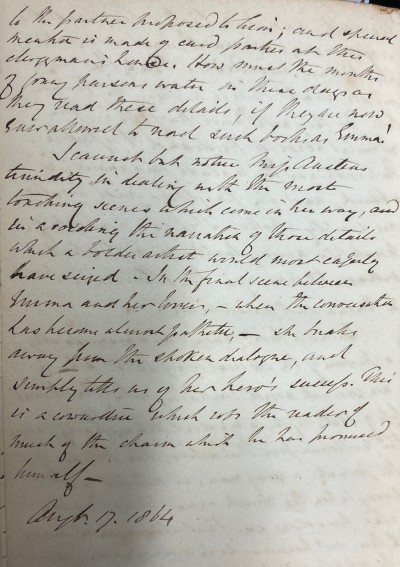 to the partner proposed to him; and special
mention is made of card parties at this
clergyman's house. How must the mouths
of young parsons water in these days as
they read these details, if they are now
ever allowed to read such books as Emma!
I cannot but notice Miss Austens
timidity in dealing with the most
touching scenes which come in her way, and
in avoiding the narration of those details
which a bolder artist would most eagerly
have seized - In the final scene between
Emma and her lover, - when the conversation
has become almost pathetic, - she breaks
away from the spoken dialogue, and
simply tells us of her hero's success. This
is a cowardice which robs the reader of
much of the charm which he has promised
himself -
Augt. 17. 1864